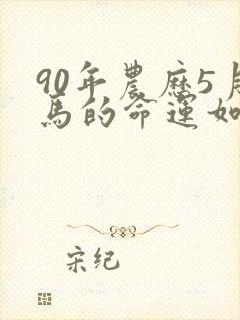 90年農歷5月
馬的命運如
宋纪